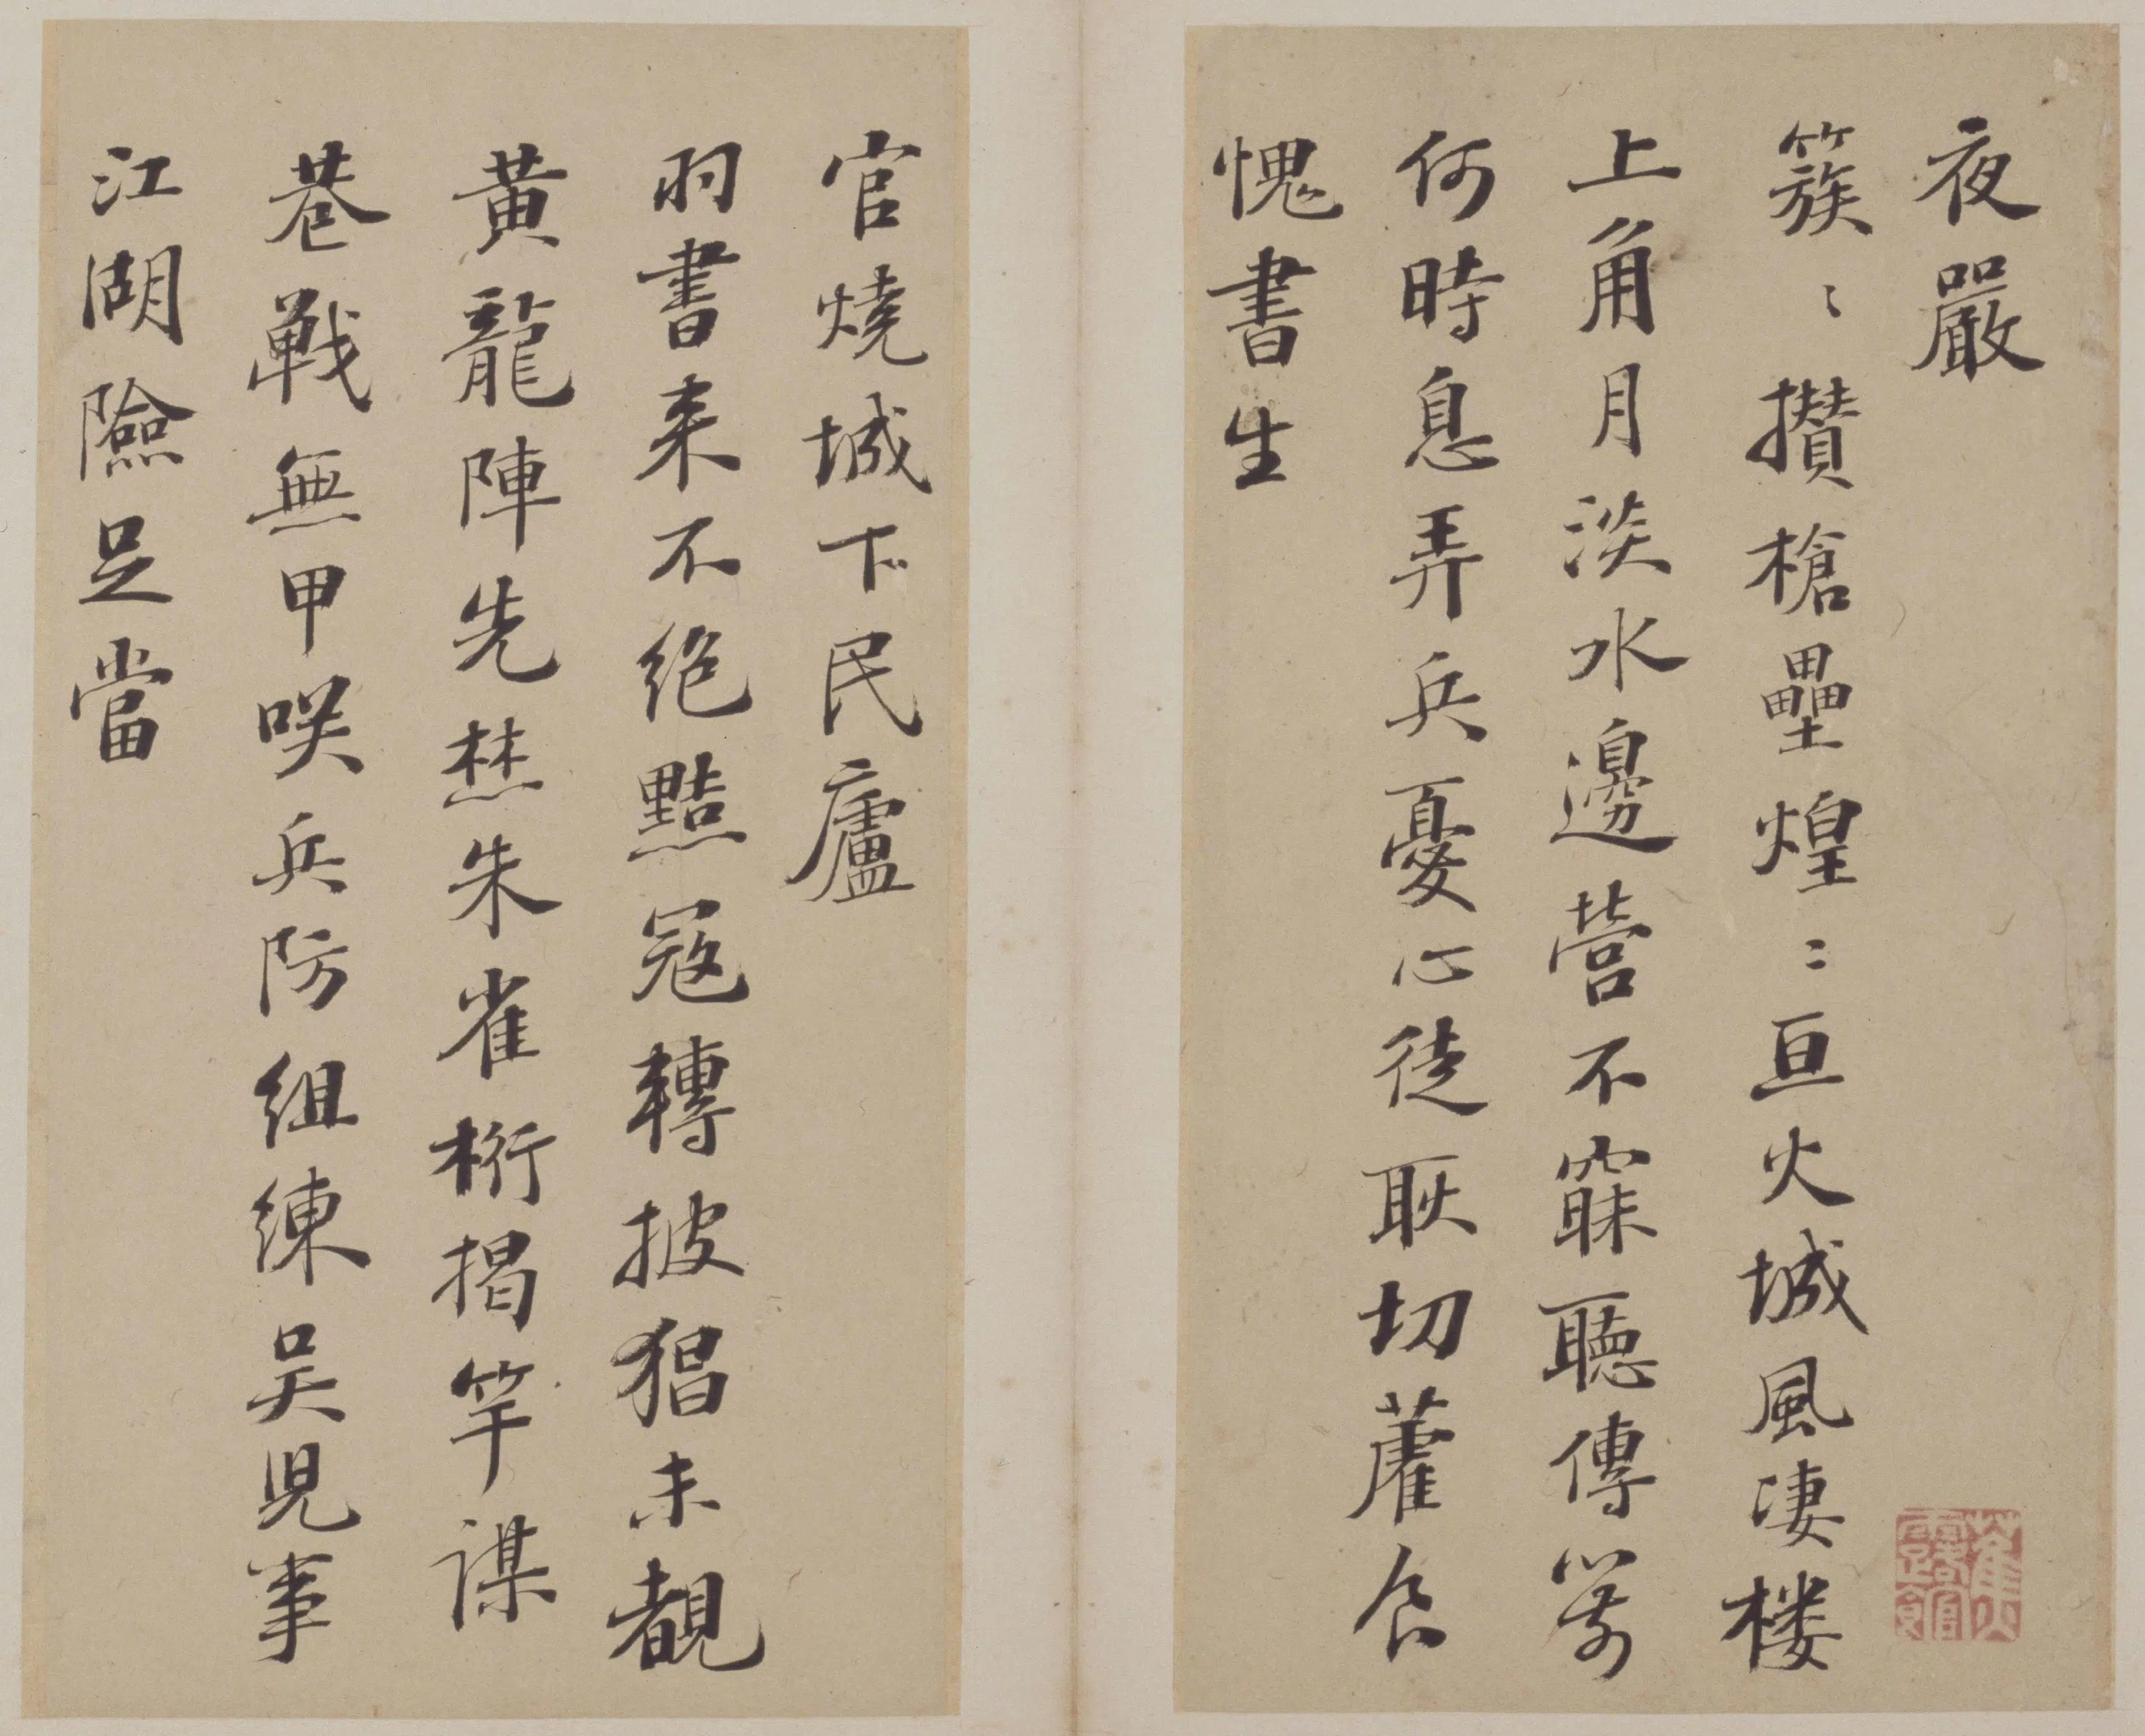 夜嚴
簇〻攢槍壘煌〻亘火城風淒楼
上角月淡水邊營不寐聽傳箭
何時息弄兵憂心徒耿切藿食
愧書生
官燒城下民廬
羽書来不絶點寇轉披猖未覩
黃龍陣先焚朱雀桁揭竿謀
巷戰無甲咲兵防組練吳兒事
江湖險足當